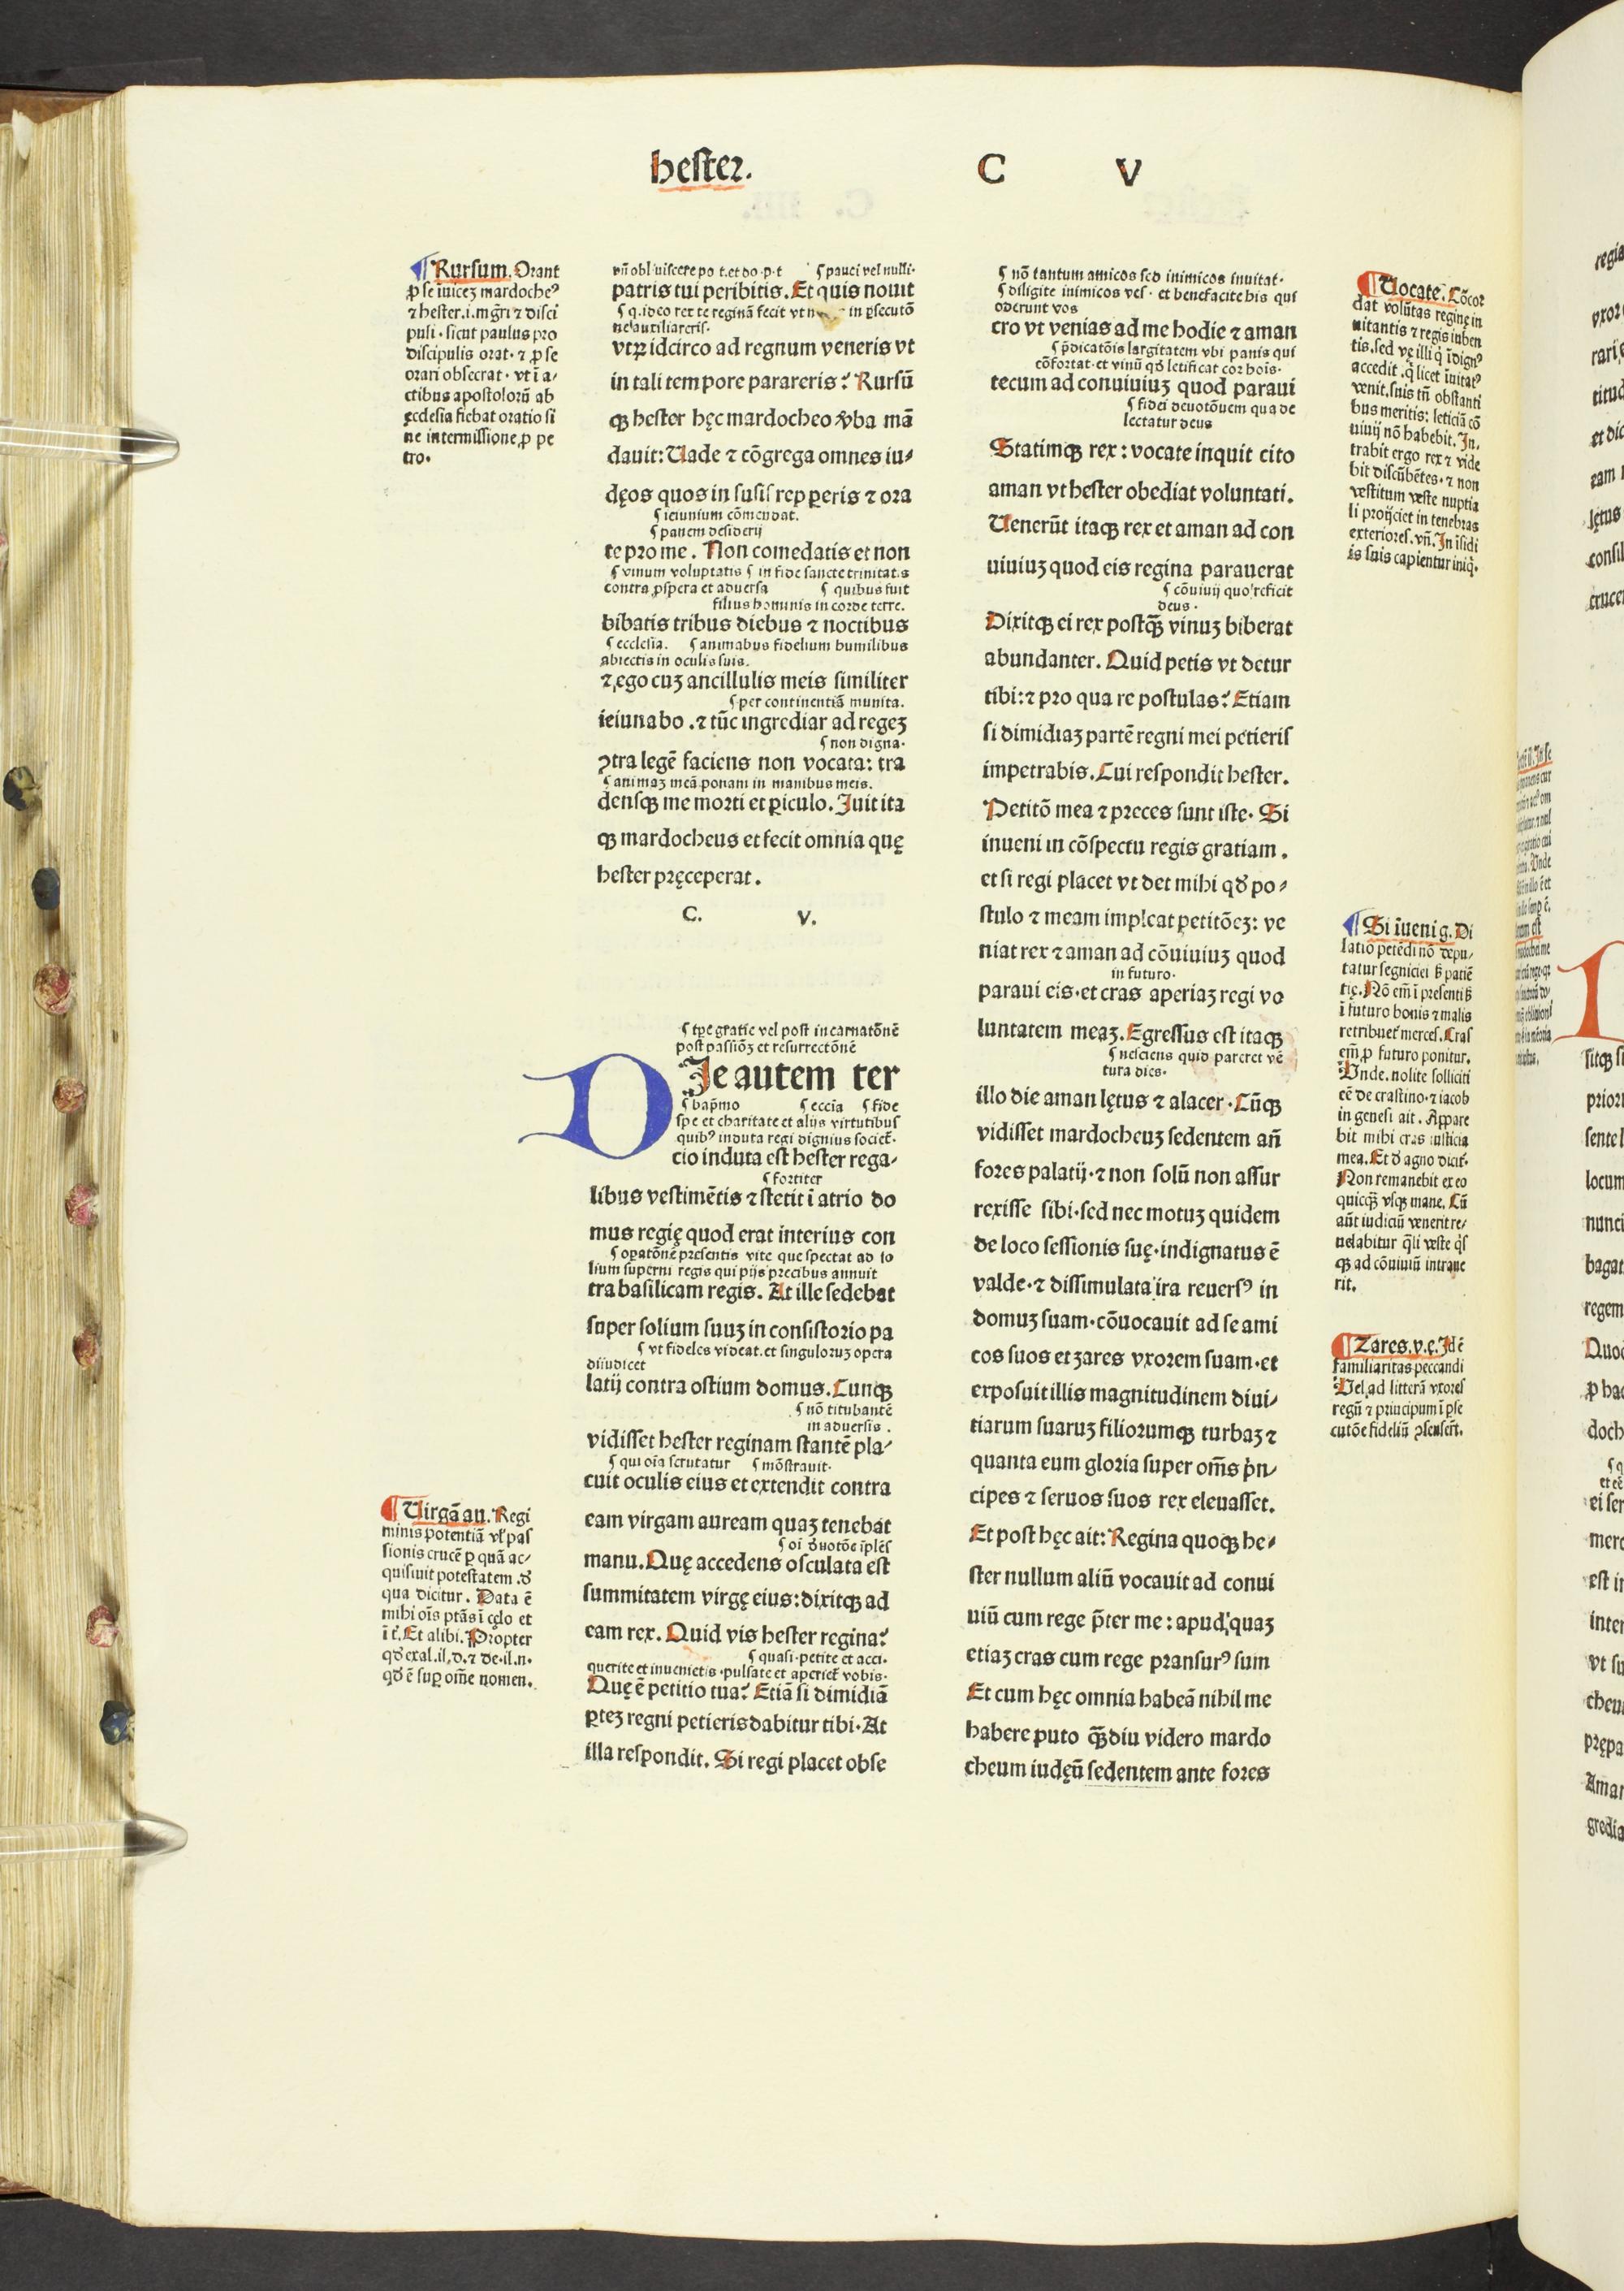 hester. C V
¶ Rursum. Orant
ꝓ se ĩuiceꝫ mardocheꝰ
⁊ hester.i.mg̃ri ⁊ disci
puli · sicut paulus pro
discipulis orat · ⁊ ꝓ se
orari obsecrat · vt ĩ a⸗
ctibus apostoloꝝ ab
ęcclesia fiebat oratio si
ne intermissione ꝓ pe
tro.
¶ Virgã au. Regi
minis potentiã vl̕ pas
sionis crucẽ ꝑ quã ac⸗
quisiuit potestatem .ð
qua dicitur . Data ẽ
mihi oĩs ptãs ĩ cęlo et
ĩ t̕. Et alibi. Propter
qð exal.il.d.⁊ de.il.n.
qð ẽ suꝑ om̃e nomen.
vñ obliuiscere po t.et do.p.t ¶ pauci vel nulli.
patris tui peribitis. Et quis nouit
vtꝝ idcirco ad regnum veneris vt
in tali tempore parareris? Rursũ
qꝫ hester hęc mardocheo v̕ba mã
dauit: Uade ⁊ cõgrega omnes iu⸗
dęos quos in susis repꝑeris ⁊ ora
¶ ieiunium cõmendat.
¶ panem desiderij
te pro me. Non comedatis et non
¶ vinum voluptatis ¶ in fide sancte trinitatis
contra ꝓspera et aduersa ¶ quibus fuit
filius hominis in corde terre.
bibatis tribus diebus ⁊ noctibus
¶ ecclesia. ¶ animabus fidelium humilibus
abiectis in oculis suis.
⁊ ego cuꝫ ancillulis meis similiter
¶ per continentiã munita.
ieiunabo .⁊ tũc ingrediar ad regeꝫ
¶ non digna.
ꝯtra legẽ faciens non vocata: tra
¶ animaꝫ meã ponam in manibus meis.
densqꝫ me morti et ꝑiculo. Iuit ita
qꝫ mardocheus et fecit omnia quę
hester pręceperat.
C. V.
¶ tꝑe gratie vel post incarnatõnẽ
post passiõꝫ et resurrectõnẽ
DIe autem ter
¶ bap̃mo ¶ eccĩa ¶ fide
spe et charitate et alijs virtutibus
quibꝰ induta regi dignius societ̕.
cio induta est hester rega⸗
¶ fortiter
libus vestimẽtis ⁊ stetit ĩ atrio do
mus regię quod erat interius con
¶ oꝑatõnẽ presentis vite que spectat ad so
lium superni regis qui pijs precibus annuit
tra basilicam regis. At ille sedebat
super solium suuꝫ in consistorio pa
¶ vt fideles videat. et singuloruꝫ opera
dijudicet
latij contra ostium domus. Cunqꝫ
¶ nõ titubantẽ
in aduersis .
vidisset hester reginam stantẽ pla⸗
¶ qui oĩa scrutatur ¶ mõstrauit.
cuit oculis eius et extendit contra
eam virgam auream quaꝫ tenebat
¶ oĩ ðuotõe ĩplẽs
manu. Quę accedens osculata est
summitatem virgę eius: dixitqꝫ ad
eam rex. Quid vis hester regina?
¶ quasi · petite et acci.
querite et inuenietis · pulsate et aperiet̕ vobis.
Quę ẽ petitio tua? Etiã si dimidiã
ꝑteꝫ regni petieris dabitur tibi. At
illa respondit. Si regi placet obse
¶ nõ tantum amicos sed inimicos inuitat.
¶ diligite inimicos ves. et benefacite his qui
oderunt vos
cro vt venias ad me hodie ⁊ aman
¶ p̃dicatõis largitatem vbi panis qui
cõfortat. et vinũ qð letificat cor hoĩs.
tecum ad conuiuiuꝫ quod paraui
¶ fidei deuotõnem qua de
lectatur deus
Statimqꝫ rex: vocate inquit cito
aman vt hester obediat voluntati.
Uenerũt itaqꝫ rex et aman ad con
uiuiuꝫ quod eis regina parauerat
¶ cõuiuij quo reficit
deus .
Dixitqꝫ ei rex postqꝫ̃ vinuꝫ biberat
abundanter. Quid petis vt detur
tibi: ⁊ pro qua re postulas? Etiam
si dimidiaꝫ partẽ regni mei petieris
impetrabis. Cui respondit hester.
Petitõ mea ⁊ preces sunt iste. Si
inueni in cõspectu regis gratiam.
et si regi placet vt det mihi qð po⸗
stulo ⁊ meam impleat ꝑetitõeꝫ: ve
niat rex ⁊ aman ad cõuiuiuꝫ quod
in futuro.
paraui eis. et cras aperiaꝫ regi vo
luntatem meaꝫ. Egressus est itaqꝫ
¶ nesciens quid pareret vẽ
tura dies.
illo die aman lętus ⁊ alacer. Cũqꝫ
vidisset mardocheuꝫ sedentem añ
fores palatij. ⁊ non solũ non assur
rexisse sibi. sed nec motuꝫ quidem
de loco sessionis suę. indignatus ẽ
valde. ⁊ dissimulata ira reuersꝰ in
domuꝫ suam. cõuocauit ad se ami
cos suos et ʒares vxorem suam. et
exposuit illis magnitudinem diui⸗
tiarum suaruꝫ filiorumqꝫ turbaꝫ ⁊
quanta eum gloria super om̃s p̃n⸗
cipes ⁊ seruos suos rex eleuasset.
Et post hęc ait: Regina quoqꝫ he⸗
ster nullum aliũ vocauit ad conui
uiũ cum rege p̃ter me: apud quaꝫ
etiaꝫ cras cum rege pransurꝰ sum
Et cum hęc omnia habeã nihil me
habere puto qꝫ̃diu videro mardo
cheum iudęũ sedentem ante fores
¶ Uocate. Cõcor
dat volũtas reginę in
uitantis ⁊ regis iuben
tis. sed vę illi q̇ ĩdignꝰ
accedit . q̇ licet ĩuitatꝰ
venit. suis tñ obstanti
bus meritis: leticiã cõ
uiuij nõ habebit. In⸗
trabit ergo rex ⁊ vide
bit discũbẽtes. ⁊ non
vestitum veste nuptia
li proijciet in tenebras
exteriores. vñ. In ĩsidi
is suis capientur iniq̇.
¶ Si ĩueni g. Di
latio petẽdi nõ depu⸗
tatur segniciei s̕ patiẽ
tię. Nõ em̃ ĩ presenti s̕
ĩ futuro bonis ⁊ malis
retribuet̕ merces. Cras
em̃ ꝓ futuro ponitur.
Unde. nolite solliciti
eẽ de crastino. ⁊ iacob
in genesi ait . Appare
bit mihi cras iusticia
mea. Et ð agno dicit̕.
Non remanebit ex eo
quicqꝫ̃ vsqꝫ mane. Cũ
aũt iudiciũ venerit re⸗
uelabitur q̃li veste q̇s
qꝫ ad cõuiuiũ intraue
rit.
¶ Zares. v. ę. Id ẽ
familiaritas peccandi
Uel ad litterã vxores
regũ ⁊ principum ĩ ꝑse
cutõe fideliũ ꝯsenser̃t.